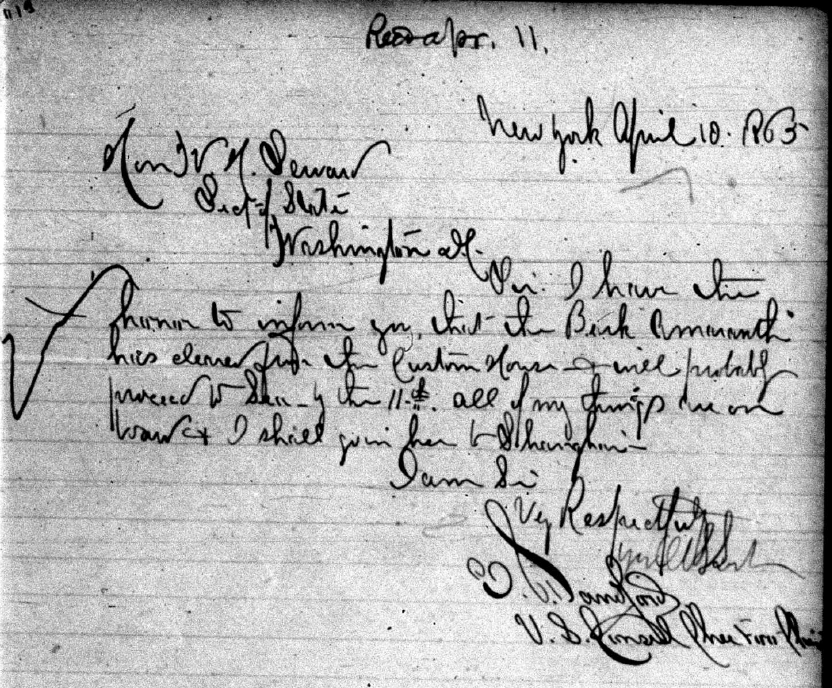 Rec'd Apr. 11.
New York April 10. 1863
Hon W. H. Seward
Sect of State
Washington
Sir. I have the
honor to inform you, that the Bark Amaranth
has cleared from the Custom House & will probably
proceed to Sea by the 11th. all of my things are on
board & I shall go in her to Shanghai
I am Sir
Vy Respectfully
Sandford
U. S. Consul